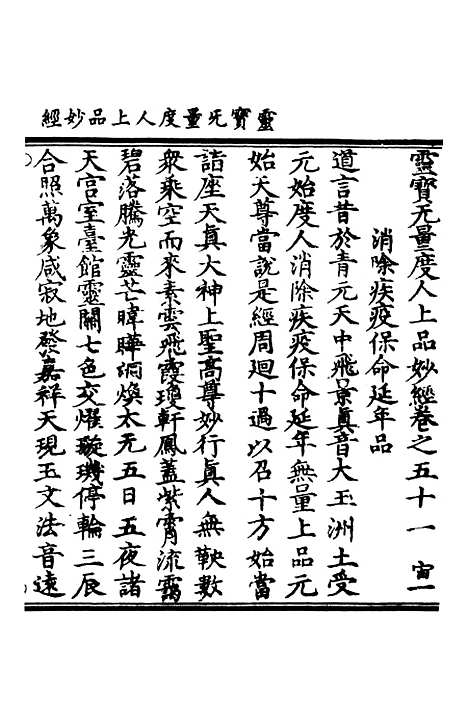 靈寶旡量度人上品妙經
靈寶无量度人上品妙經卷之五十一 宙一
消除疾疫保命延年品
道言昔於青元天中飛景真音大玉洲土受
元始度人消除疾疫保命延年無量上品元
始天尊當說是經周迴十過以召十方始當
詣座天真大神上聖高尊妙行真人無鞅數
衆乘空而來素雲飛霞瓊軒鳳蓋紫霄流靄
碧落騰光靈芒暐曄洞煥太无五日五夜諸
天宮室臺館靈關七色交耀璇璣停輪三辰
合照萬象咸寂地發嘉祥天現玉文法音遠